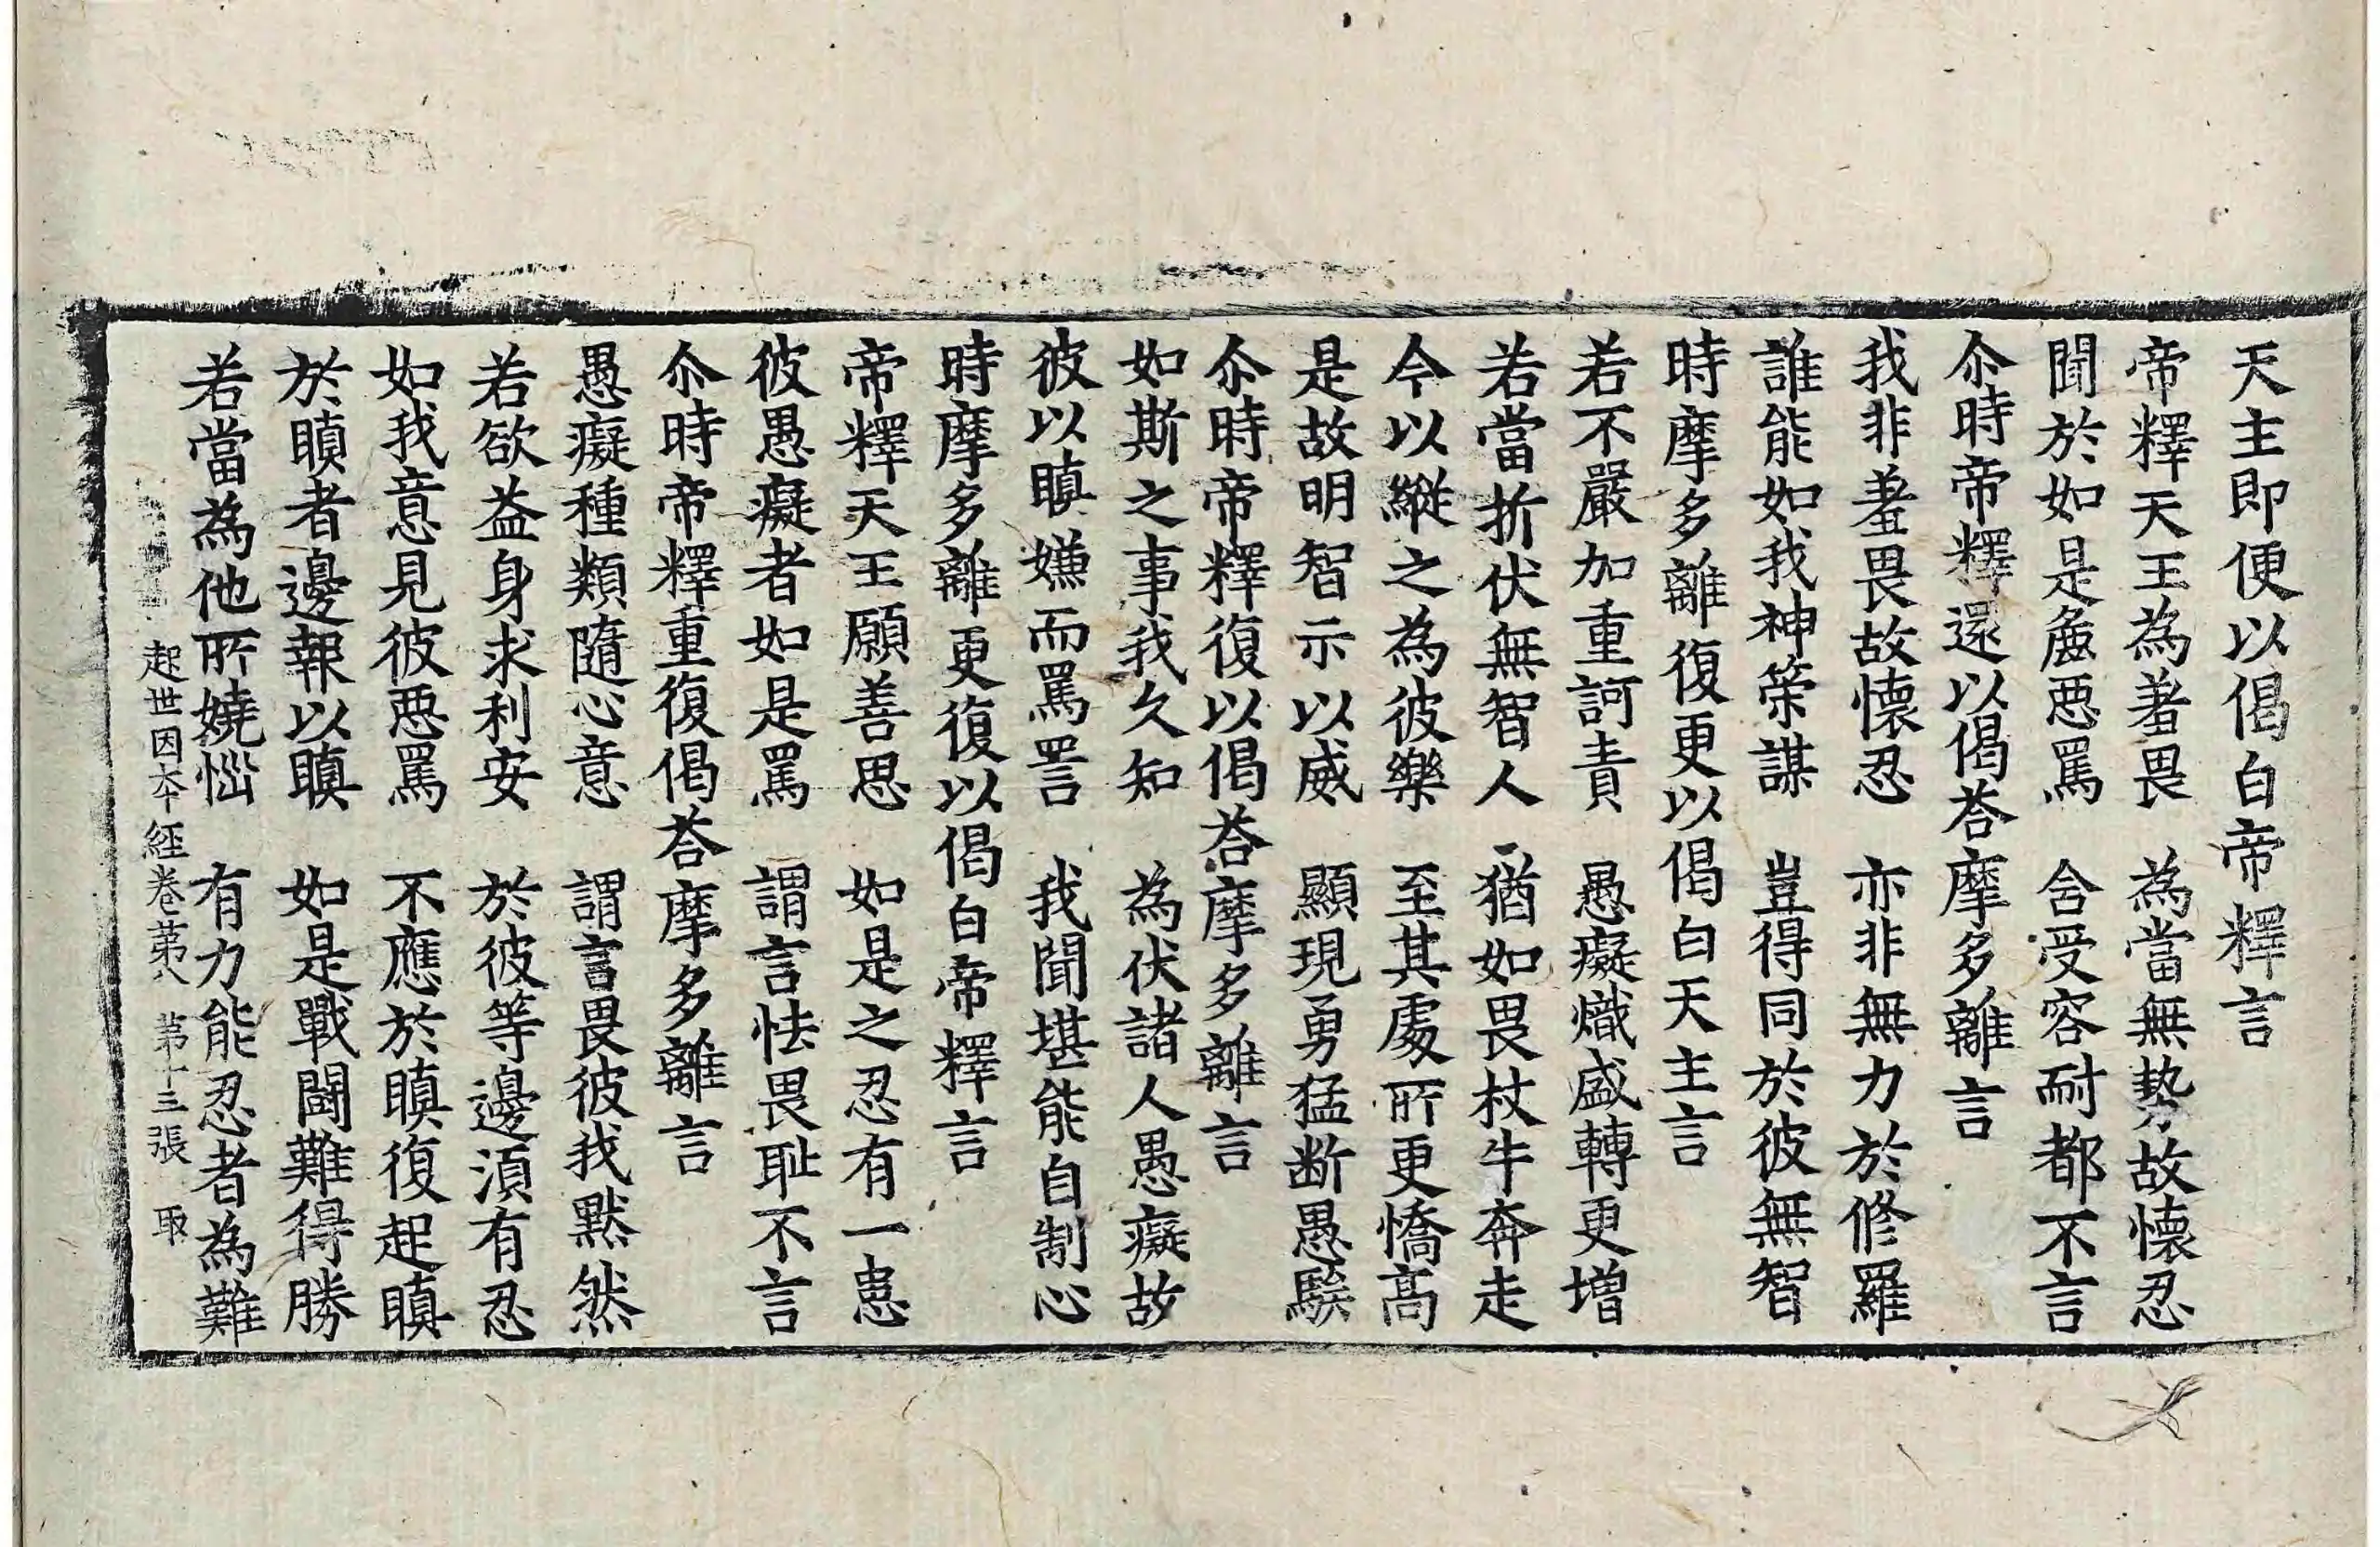 天主即便以偈白帝釋言
帝釋天王為羞畏　為當無勢故懷忍
聞於如是麁惡罵　含受容耐都不言
尒時帝釋還以偈荅摩多離言
我非羞畏故懷忍　亦非無力於修羅
誰能如我神策謀　豈得同於彼無智
時摩多離復更以偈白天主言
若不嚴加重訶責　愚癡熾盛轉更增
若當折伏無智人　猶如畏杖牛奔走
今以縱之為彼樂　至其處所更憍高
是故明智示以威　顯現勇猛断愚騃
尒時帝釋復以偈荅摩多離言
如斯之事我久知　為伏諸人愚癡故
彼以瞋嫌而罵詈　我聞堪能自制心
時摩多離更復以偈白帝釋言
帝釋天王願善思　如是之忍有一患
彼愚癡者如是罵　謂言怯畏恥不言
尒時帝釋重復偈荅摩多離言
愚癡種類隨心意　謂言畏彼我默然
若欲益身求利安　於彼等邊須有忍
如我意見彼惡罵　不應於瞋復起瞋
於瞋者邊報以瞋　如是戰鬪難得勝
若當為他所嬈惱　有力能忍者為難
起世因本經卷第八　第十三張　取